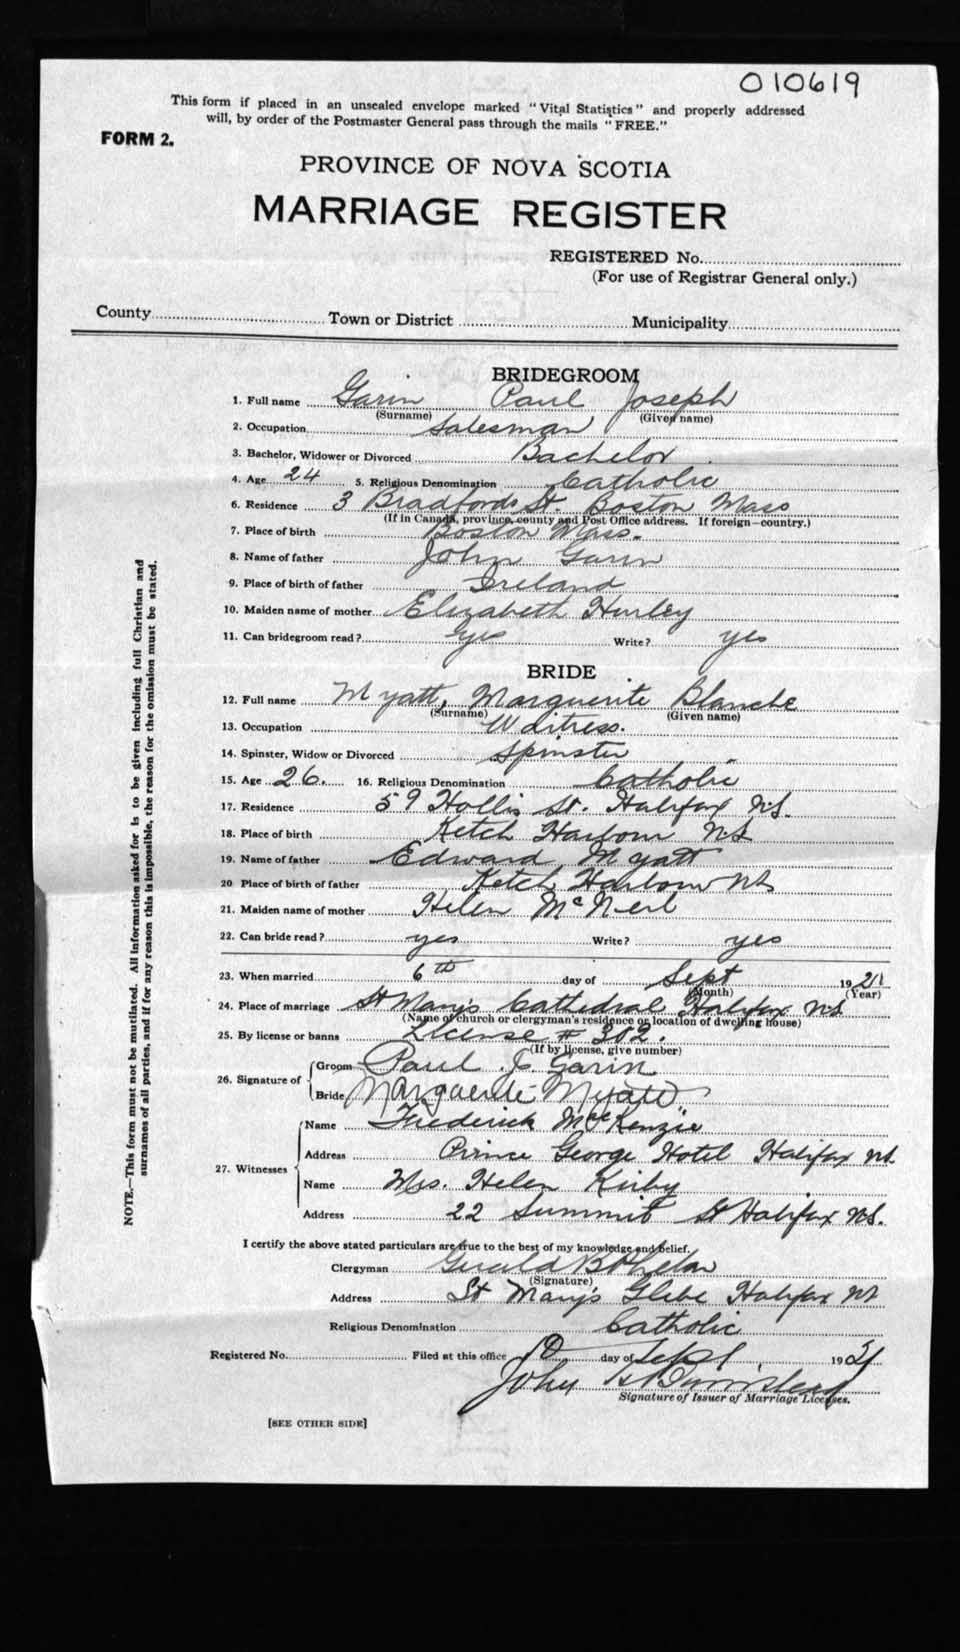 010619
This form if placed in an unsealed envelope marked "Vital Statistics" and properly addressed
will, by order of the Postmaster General pass through the mails "FREE."
FORM 2.
PROVINCE OF NOVA SCOTIA
MARRIAGE REGISTER
REGISTERED No.
(For use of Registrar General only.)
County Town or District Municipality
BRIDEGROOM
1. Full name Garin Paul Joseph
(Surname) (Given name)
2. Occupation Salesman
3. Bachelor, Widower or Divorced Bachelor
4. Age 24 5. Religious Denomination Catholic
6. Residence 3 Bradford St. Boston Mass
(If in Canada, province, county and Post Office address. If foreign—country.)
7. Place of birth Boston Mass.
8. Name of father John Garin
9. Place of birth of father Ireland
10. Maiden name of mother Elizabeth Hurley
11. Can bridegroom read? yes Write? yes
BRIDE
12. Full name Myatt, Marguerite Blanche
(Surname) (Given name)
13. Occupation Waitress.
14. Spinster, Widow or Divorced Spinster
15. Age 26. 16. Religious Denomination Catholic
17. Residence 59 Hollis St. Halifax N.S.
18. Place of birth Ketch Harbour NS
19. Name of father Edward Myatt
20 Place of birth of father Ketch Harbour NS
21. Maiden name of mother Helen McNeil
22. Can bride read? yes Write? yes
23. When married 6th day of Sept 19
(Month) (Year)
24. Place of marriage St Mary's Cathedral Halifax NS
(Name of church or clergyman's residence or location of dwelling house)
25. By license or banns License # 302.
(If by license, give number)
26. Signature of Groom Paul J. Garin
Bride Marguerite Myatt
27. Witnesses Name Frederick MacKenzie
Address Prince George Hotel Halifax NS
Name Mrs. Helen Kirby
Address 22 Summit St Halifax N.S.
I certify the above stated particulars are true to the best of my knowledge and belief.
Clergyman Gerald B Phelan
(Signature)
Address St Mary's Glebe Halifax NS
Religious Denomination Catholic
Registered No. Filed at this office 10 day of Sept. 19
John
Signature of Issuer of Marriage Licenses.
[SEE OTHER SIDE]
NOTE.—This form must not be mutilated. All information asked for is to be given including full Christian and
surnames of all parties, and if for any reason this is impossible, the reason for the omission must be stated.